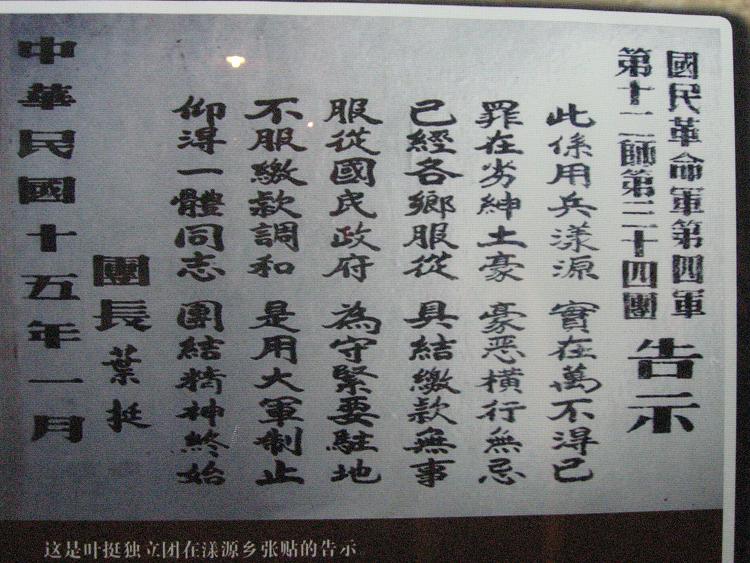 國民革命軍第四軍
第十二師第三十四團
告示
此係用兵漾源 實在萬不得已
罪在劣紳土豪 豪惡橫行無忌
已經各鄉服從 具結繳款無事
服從國民政府 為守緊要駐地
不服繳款調和 是用大軍制止
仰得一體同志 團結精神終始
團長葉挺
中華民國十五年一月
这是叶挺独立团在漾源乡张贴的告示